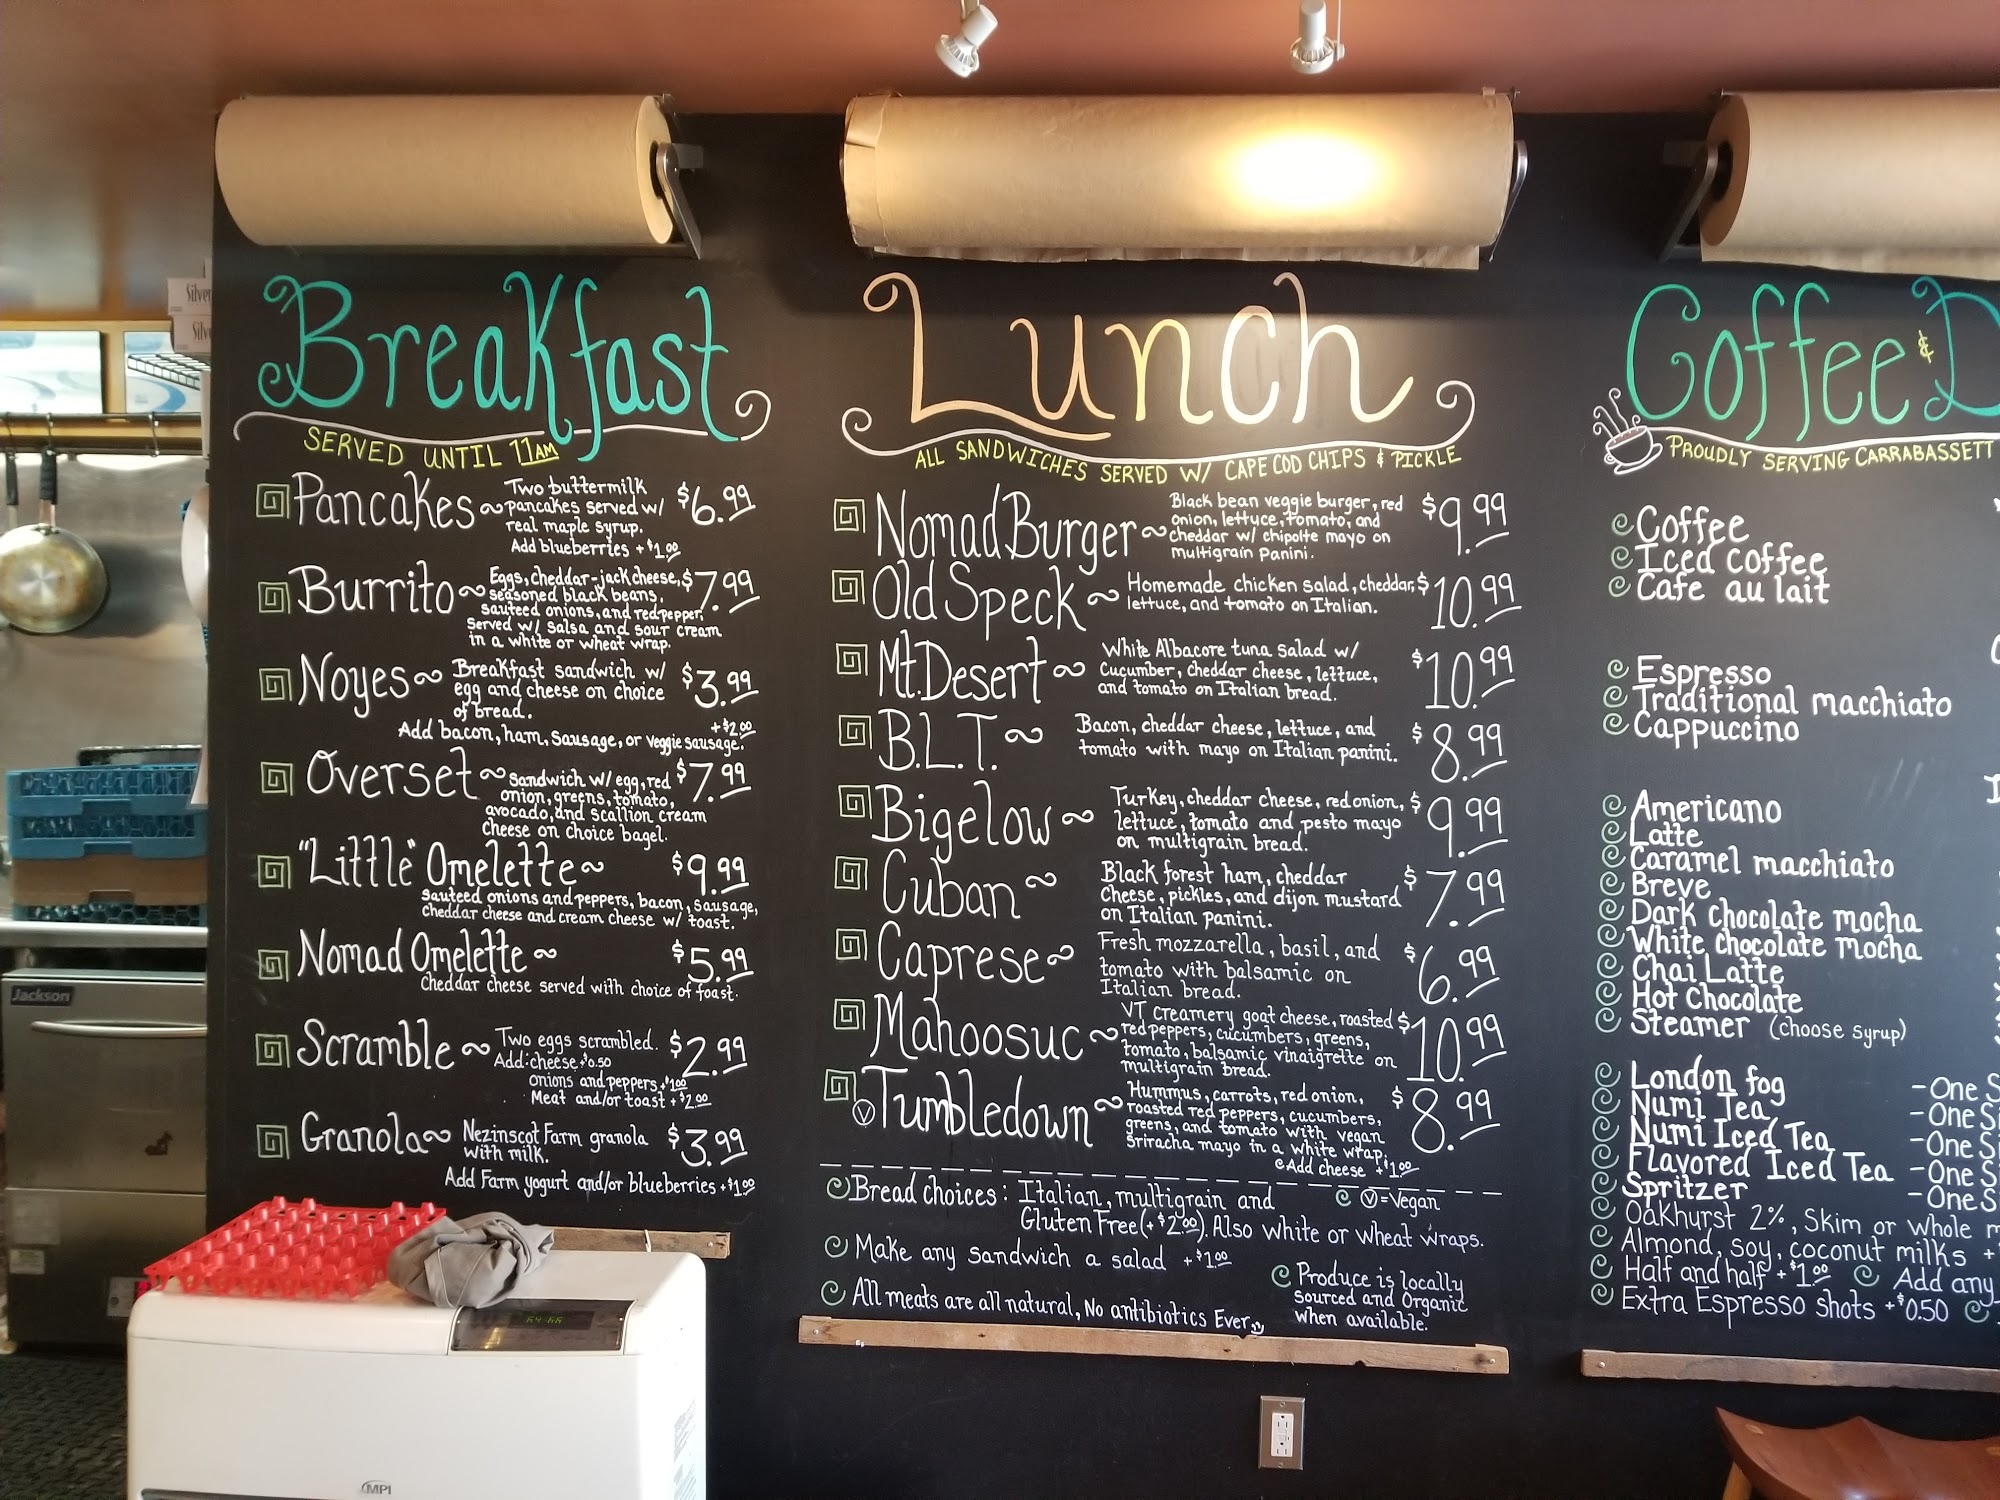 Silver
Silv
Jackson
Breakfast
SERVED UNTIL 11AM
Pancakes ~ Two buttermilk $6.99
pancakes served w/
real maple syrup.
Add blueberries +$1.00
Burrito ~ Eggs, cheddar-jack cheese, $7.99
seasoned black beans,
sauteed onions, and red pepper,
served w/ salsa and sour cream
in a white or wheat wrap.
Noyes ~ Breakfast sandwich w/ $3.99
egg and cheese on choice
of bread.
+$2.00
Add bacon, ham, sausage, or veggie sausage.
Overset ~ Sandwich w/ egg, red $7.99
onion, greens, tomato,
avocado, and scallion cream
cheese on choice bagel.
"Little" Omelette ~ $9.99
sauteed onions and peppers, bacon, sausage,
cheddar cheese and cream cheese w/ toast.
Nomad Omelette ~ $5.99
Cheddar cheese served with choice of toast.
Scramble ~ Two eggs scrambled. $2.99
Add: cheese +$0.50
onions and peppers +$1.00
Meat and/or toast +$2.00
Granola ~ Nezinscot Farm granola $3.99
with milk.
Add Farm yogurt and/or blueberries +$1.00
MPI
Lunch
ALL SANDWICHES SERVED W/ CAPE COD CHIPS & PICKLE
Nomad Burger ~ Black bean veggie burger, red $9.99
onion, lettuce, tomato, and
cheddar w/ chipolte mayo on
multigrain panini.
Old Speck ~ Homemade chicken salad, cheddar, $10.99
lettuce, and tomato on Italian.
Mt. Desert ~ White Albacore tuna salad w/ $10.99
cucumber, cheddar cheese, lettuce,
and tomato on Italian bread.
B.L.T. ~ Bacon, cheddar cheese, lettuce, and $8.99
tomato with mayo on Italian panini.
Bigelow ~ Turkey, cheddar cheese, red onion, $9.99
lettuce, tomato and pesto mayo
on multigrain bread.
Cuban ~ Black forest ham, cheddar $7.99
cheese, pickles, and dijon mustard
on Italian panini.
Caprese ~ Fresh mozzarella, basil, and $6.99
tomato with balsamic on
Italian bread.
Mahoosuc ~ VT creamery goat cheese, roasted $10.99
red peppers, cucumbers, greens,
tomato, balsamic vinaigrette on
multigrain bread.
V Tumbledown ~ Hummus, carrots, red onion, $8.99
roasted red peppers, cucumbers,
greens, and tomato with vegan
sriracha mayo in a white wrap.
Add cheese +$1.00
Bread choices: Italian, multigrain and
Gluten Free (+$2.00). Also white or wheat wraps.
Ⓥ=Vegan
Make any sandwich a salad +$1.00
All meats are all natural, No antibiotics Ever
Produce is locally
sourced and Organic
when available.
Coffee & D
PROUDLY SERVING CARRABASSETT
Coffee
Iced coffee
Cafe au lait
Espresso
Traditional macchiato
Cappuccino
Americano
Latte
Caramel macchiato
Breve
Dark chocolate mocha
White chocolate mocha
Chai Latte
Hot Chocolate
Steamer (choose syrup)
London fog - One S
Numi Tea - One Si
Numi Iced Tea - One Si
Flavored Iced Tea - One S
Spritzer - One S
Oakhurst 2%, Skim or whole m
Almond, soy, coconut milks +
Half and half +$1.00 Add any
Extra Espresso shots +$0.50